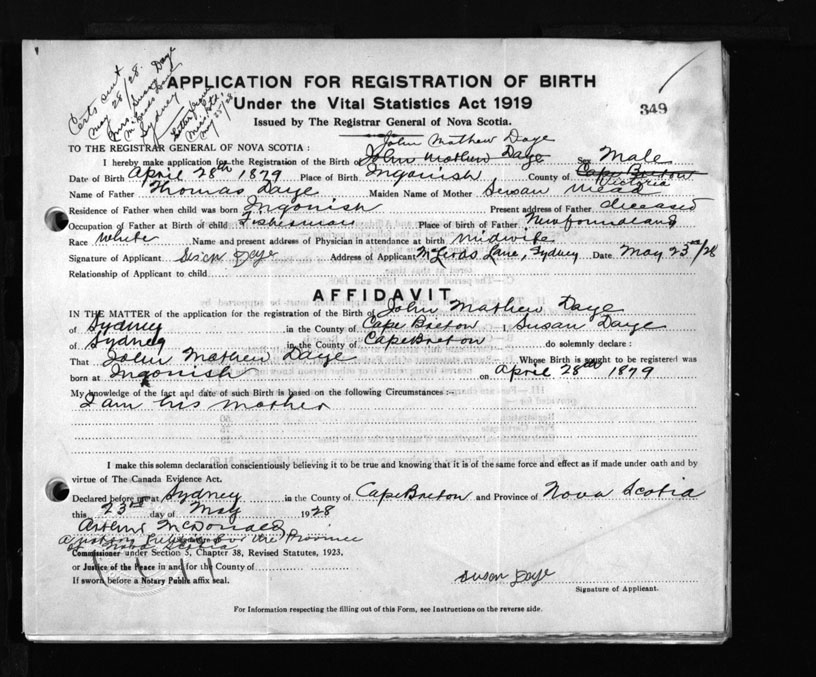 Certs out
May 28/28.
Mrs. Susan Daye
McLeods Lane
Sydney
May 28/28
APPLICATION FOR REGISTRATION OF BIRTH
Under the Vital Statistics Act 1919
Issued by The Registrar General of Nova Scotia.
349
John Mathew Daye
TO THE REGISTRAR GENERAL OF NOVA SCOTIA:
I hereby make application for the Registration of the Birth of John Mathew Daye Sex Male
Date of Birth April 28th 1879 Place of Birth Ingonish County of Cape Breton
Victoria
Name of Father Thomas Daye Maiden Name of Mother Susan Mead
Residence of Father when child was born Ingonish Present address of Father diceased
Occupation of Father at Birth of child Fisherman Place of birth of Father Newfoundland
Race white Name and present address of Physician in attendance at birth midwife
Signature of Applicant Susan Daye Address of Applicant McLeods Lane, Sydney Date May 23rd/28
Relationship of Applicant to child
AFFIDAVIT
IN THE MATTER of the application for the registration of the Birth of John Mathew Daye
of Sydney in the County of Cape Breton I, Susan Daye
of Sydney in the County of Cape Breton do solemnly declare:
That John Mathew Daye Whose Birth is sought to be registered was
born at Ingonish on April 28th 1879
My knowledge of the fact and date of such Birth is based on the following Circumstances:—
I am his mother
I make this solemn declaration conscientiously believing it to be true and knowing that it is of the same force and effect as if made under oath and by
virtue of The Canada Evidence Act.
Declared before me at Sydney in the County of Cape Breton and Province of Nova Scotia
this 23rd day of May 1928
Arthur McDonald
A Notary Public for the Province
of Nova Scotia
Commissioner under Section 5, Chapter 38, Revised Statutes, 1923.
or Justice of the Peace in and for the County of
If sworn before a Notary Public affix seal.
Susan Daye
Signature of Applicant.
For Information respecting the filling out of this Form, see Instructions on the reverse side.